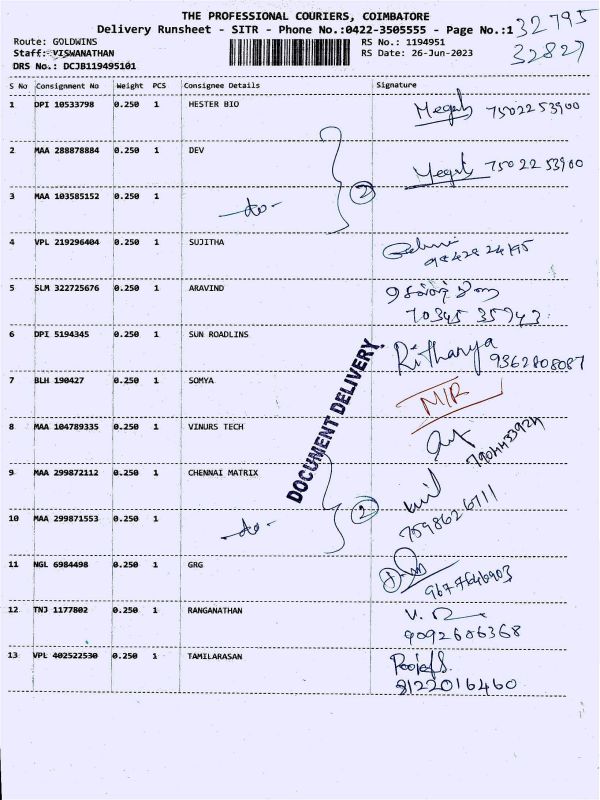 THE PROFESSIONAL COURIERS, COIMBATORE
Delivery Runsheet - SITR - Phone No.:0422-3505555 - Page No.:1 32795
Route: GOLDWINS RS No.: 1194951 32827
Staff: VISWANATHAN RS Date: 26-Jun-2023
DRS No.: DCJB119495101
S No Consignment No Weight PCS Consignee Details Signature
1 DPI 10533798 0.250 1 HESTER BIO Megab 7502253900
2 MAA 288878884 0.250 1 DEV Megab 7502253900
3 MAA 103585152 0.250 1 -do- 2
4 VPL 219296404 0.250 1 SUJITHA
5 SLM 322725676 0.250 1 ARAVIND
70345 35743
6 DPI 5194345 0.250 1 SUN ROADLINS Ritharya 9362808087
7 BLH 190427 0.250 1 SOMYA M/R
8 MAA 104789335 0.250 1 VINURS TECH
DOCUMENT DELIVERY
9 MAA 299872112 0.250 1 CHENNAI MATRIX
10 MAA 299871553 0.250 1 -do- 2 7598626711
11 NGL 6984498 0.250 1 GRG
12 TNJ 1177802 0.250 1 RANGANATHAN
9092686368
13 VPL 402522530 0.250 1 TAMILARASAN
8122016460